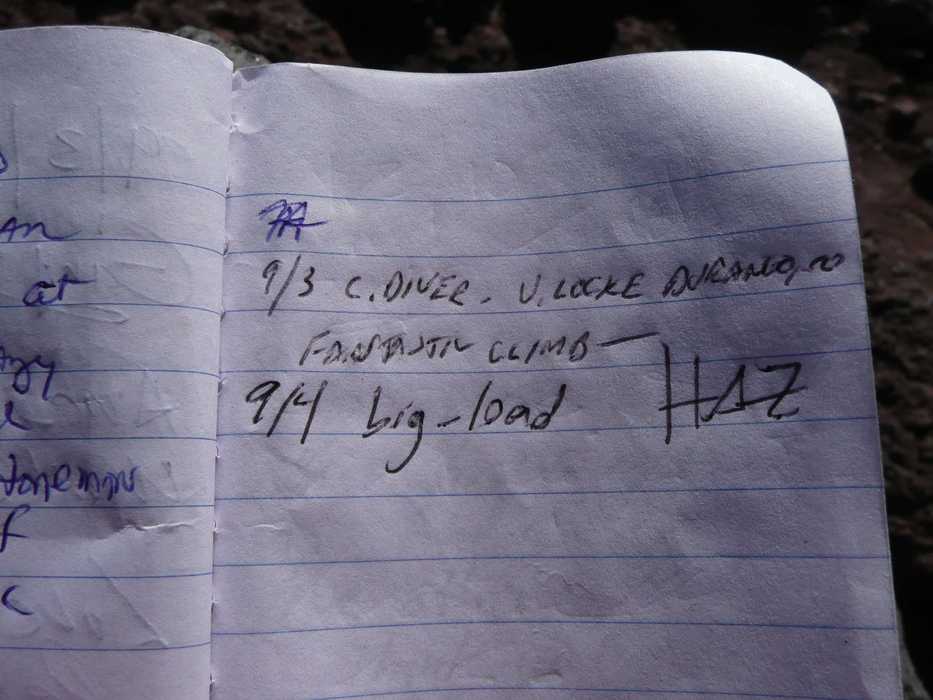 an
at
f
c
9/3 C. DIVER. V. LOCKE DURANGO, CO
FANTASTIC CLIMB —
9/4 big-load HAZ